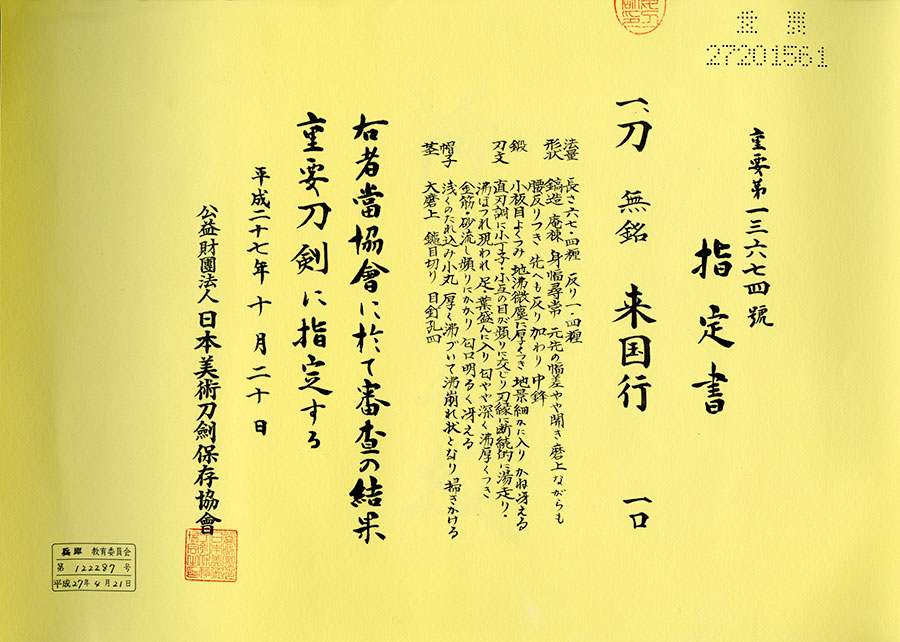 重票
27201561
重要第一三六七四號
指定書
一、刀 無銘 来国行 一口
法量 長さ六七・四糎 反り一・四糎
形状 鎬造 庵棟 身幅尋常 元先の幅差やや開き 磨上ながらも
腰反りつき 先へも反り加わり 中鋒
鍛 小板目よくつみ 地沸微塵に厚くつき 地景細かに入り かね冴える
刃文 直刃調に小丁子・小互の目が頻りに交じり 刃縁に断続的に湯走り・
沸ほつれ現われ 足・葉盛んに入り 匂やや深く 沸厚くつき
金筋・砂流し頻りにかかり 匂口明るく冴える
帽子 浅くのたれ込み小丸 厚く沸づいて沸崩れ状となり 掃きかける
茎 大磨上 鑢目切り 目釘孔四
右者當協會に於て審査の結果
重要刀剣に指定する
平成二十七年十月二十日
公益財團法人日本美術刀劍保存協會
兵庫 教育委員会
第 122287 号
平成27年4月21日